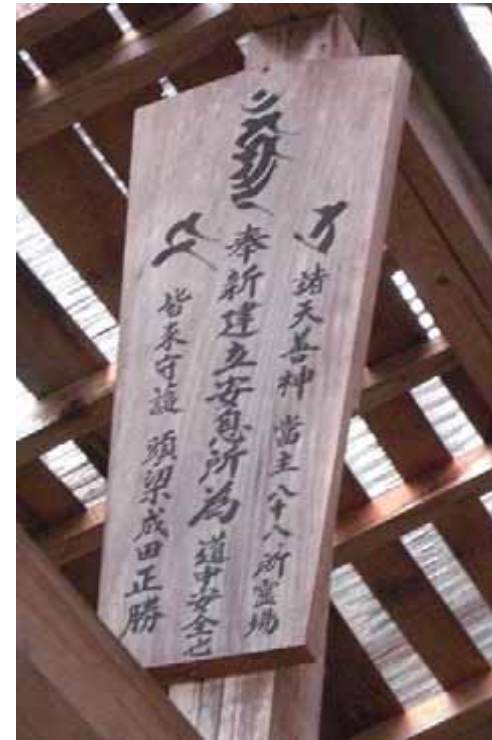 諸天善神 當主八十八所霊場
奉新建立安息所為道中安全也
皆来守護 頭梁成田正勝